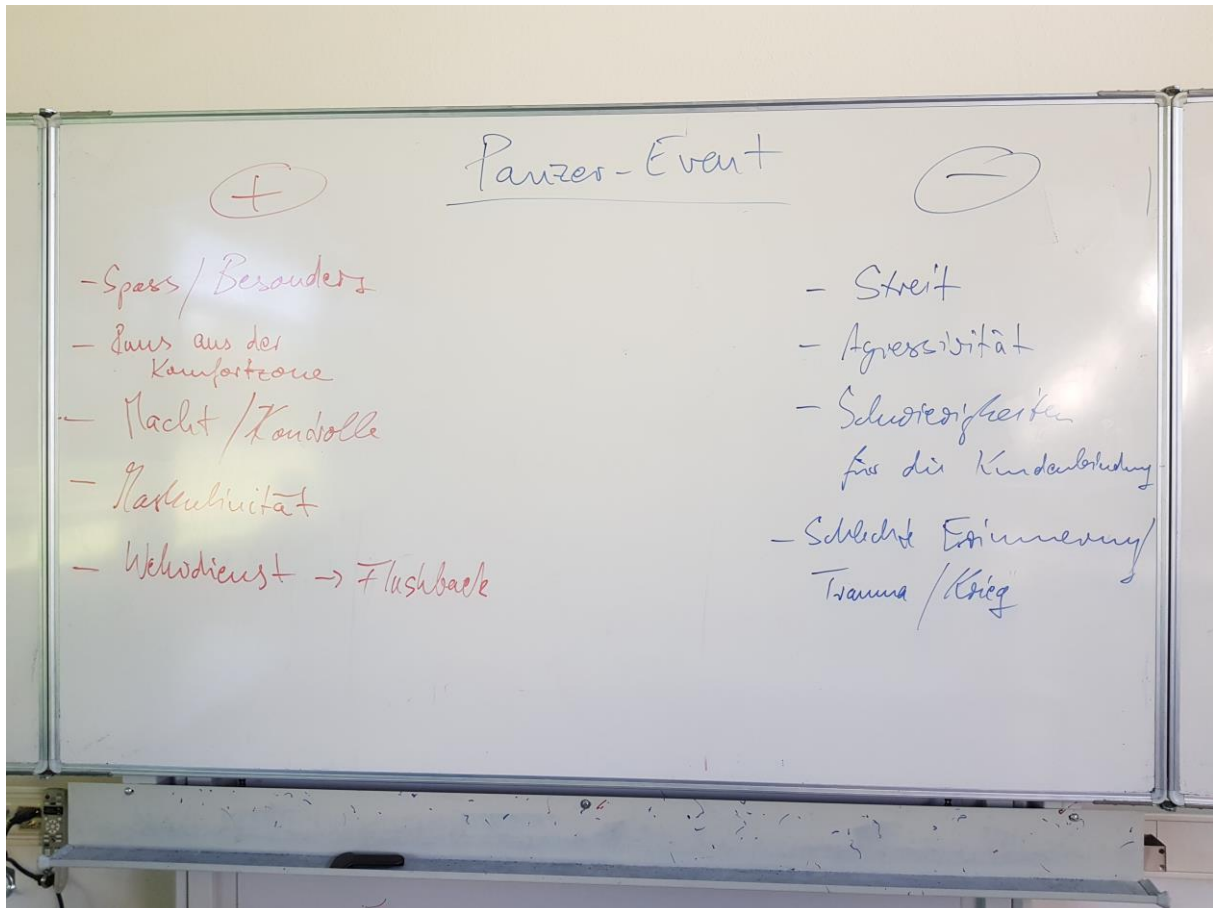 Panzer-Event
+
- Spass / Besonders
- Raus aus der
Komfortzone
- Macht / Kontrolle
- Maskulinität
- Wehrdienst → Flashback
-
- Streit
- Agressivität
- Schwierigkeiten
für die Kundenbindung
- Schlechte Erinnerung /
Trauma / Krieg